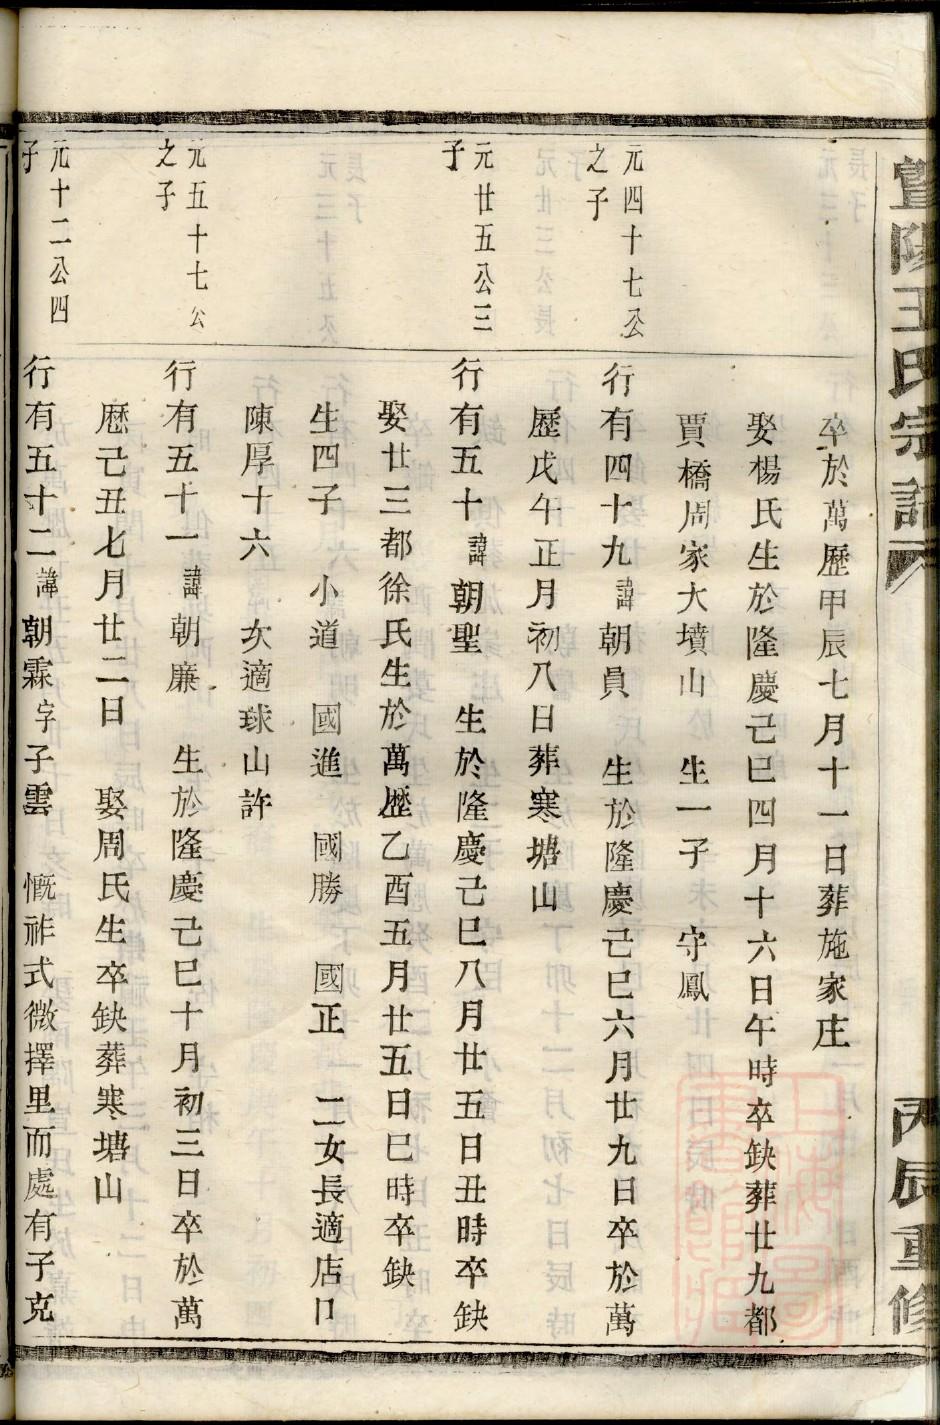 暨陽王氏宗譜
丙辰重修
卒於萬歷甲辰七月十一日葬施家庄
娶楊氏生於隆慶己巳四月十六日午時卒缺葬廿九都
賈橋周家大墳山 生一子 守鳳
元四十七公
之子
行有四十九諱朝員 生於隆慶己巳六月廿九日卒於萬
歷戊午正月初八日葬寒塘山
元廿五公三
子
行有五十諱朝聖 生於隆慶己巳八月廿五日丑時卒缺
娶廿三都徐氏生於萬歷乙酉五月廿五日巳時卒缺
生四子 小道 國進 國勝 國正 二女長適店口
陳厚十六 次適球山許
元五十七公
之子
行有五十一諱朝廉 生於隆慶己巳十月初三日卒於萬
歷己丑七月廿二日 娶周氏生卒缺葬寒塘山
元十二公四
子
行有五十二諱朝霖字子雲 慨祚式微擇里而處有子克